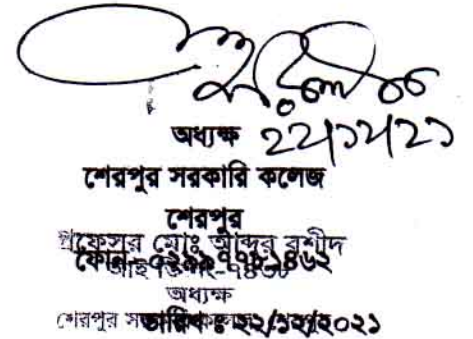 ২২/১২/২১
অধ্যক্ষ
শেরপুর সরকারি কলেজ
শেরপুর
প্রফেসর মোঃ আব্দুর রশীদ
ফোন-০২৯৯৭৭৮১৪৬২
অধ্যক্ষ
শেরপুর
তারিখ ঃ ২২/১২/২০২১